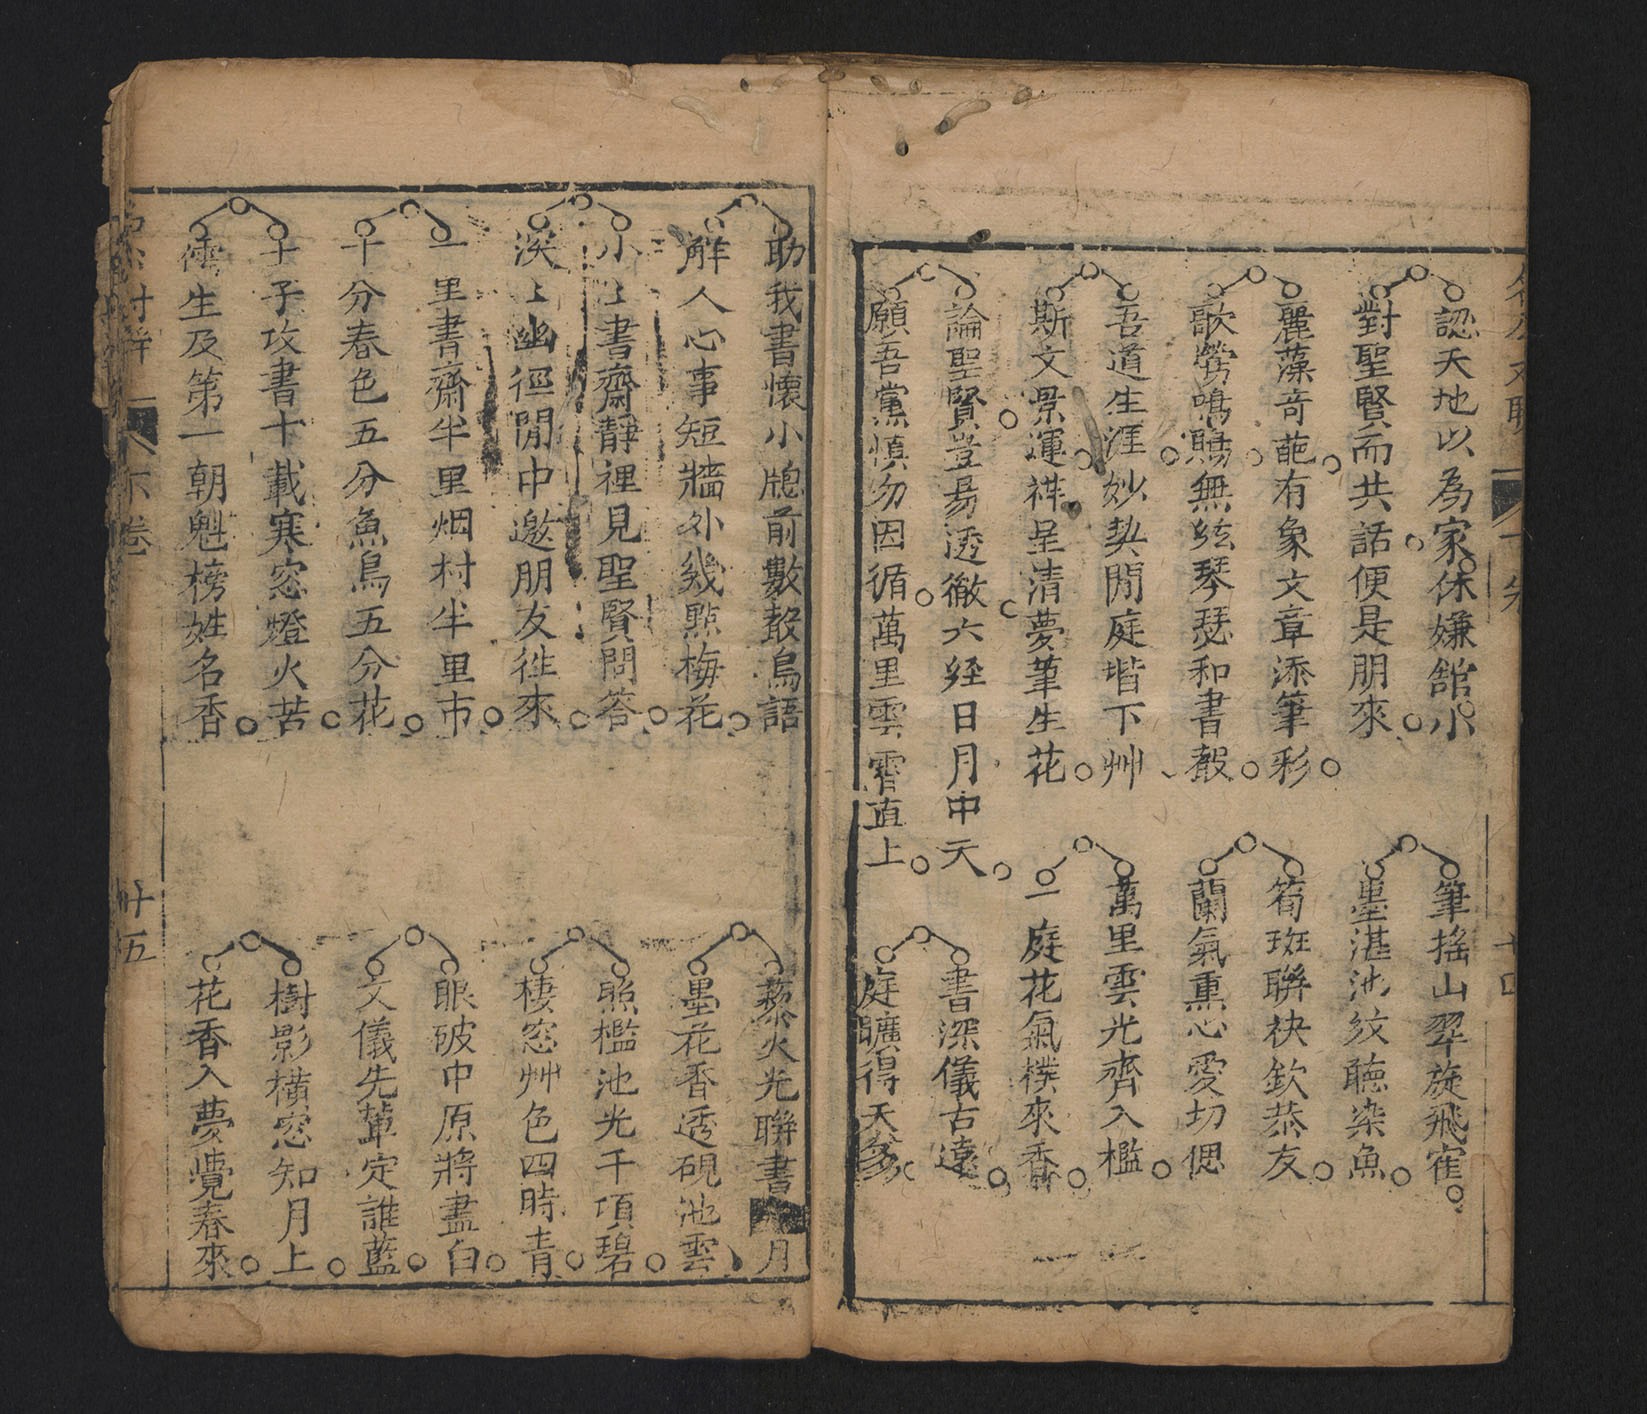 認天地以為家休嫌舘小
對聖賢而共話便是朋來
麗藻奇葩有象文章添筆彩
歌鶯鳴鵙無絃琴瑟和書聲
吾道生涯妙契閒庭堦下艸
斯文景運祥呈清夢筆生花
論聖賢豈易透徹六經日月中天
願吾黨慎勿因循萬里雲霄直上
筆搖山翠旋飛寉
墨湛池紋聽染魚
筍班聯袂欽恭友
蘭氣薰心愛切偲
萬里雲光齊入檻
一庭花氣樸來香
書深儀古遠
庭曠得天多
十四
助我書懷小牕前數聲鳥語
解人心事短牆外幾點梅花
小〻書齋靜裡見聖賢問答
深〻幽徑閒中邀朋友徃來
一里書齋半里烟村半里市
十分春色五分魚鳥五分花
士子攻書十載寒窓燈火苦
儒生及第一朝魁榜姓名香
藜火光聯書月
墨花香透硯池雲
照檻池光千項碧
棲窓艸色四時青
眼破中原將盡白
文儀先輩定誰藍
樹影橫窓知月上
花香入夢覺春來
下卷
十五